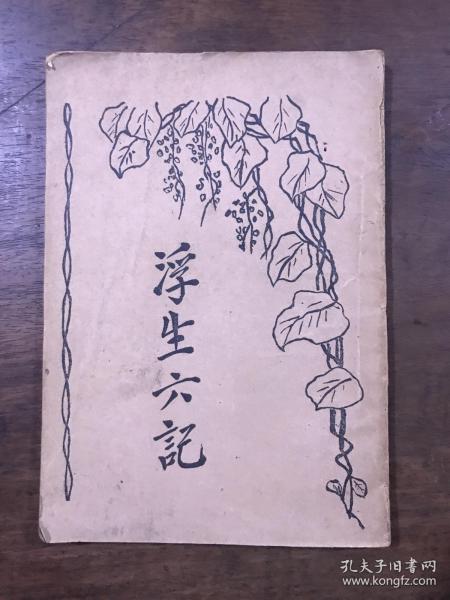 浮生六記
孔夫子旧书网
www.kongfz.com